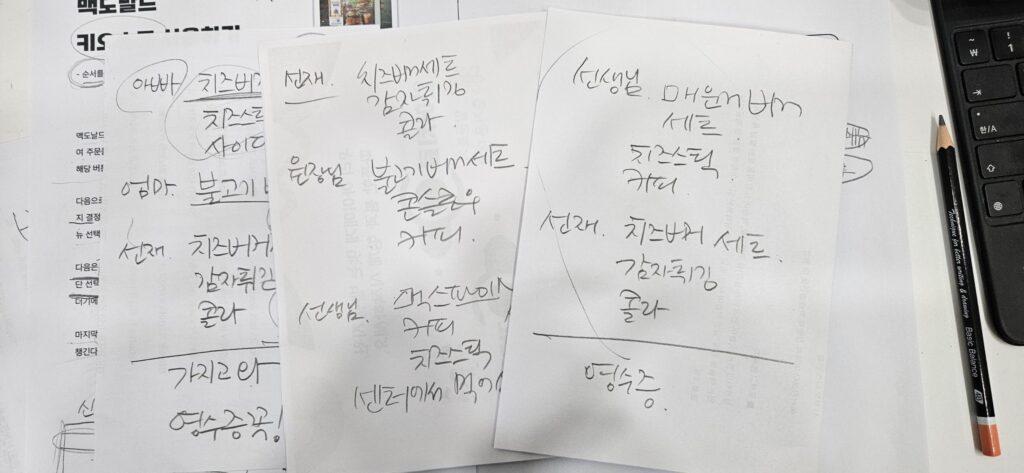 맥도날드
- 순서를
맥도날드
여 주문
해당 버
다음으로
지 결정
뉴 선택
다음은
단 선택
더기에
마지막
챙긴다
신
아빠 치즈버거
치즈스틱
사이다
엄마 불고기
선재 치즈버거
감자튀김
콜라
가지고와
영수증꼭!
선재. 치즈버거세트
감자튀김
콜라.
원장님 불고기버거세트
콘슬로우
커피.
선생님.
커피
치즈스틱
센터에서 먹
선생님. 매운 버거
세트.
치즈스틱
커피.
선재. 치즈버거 세트.
감자튀김
콜라
영수증.
한/A
Basic Balance